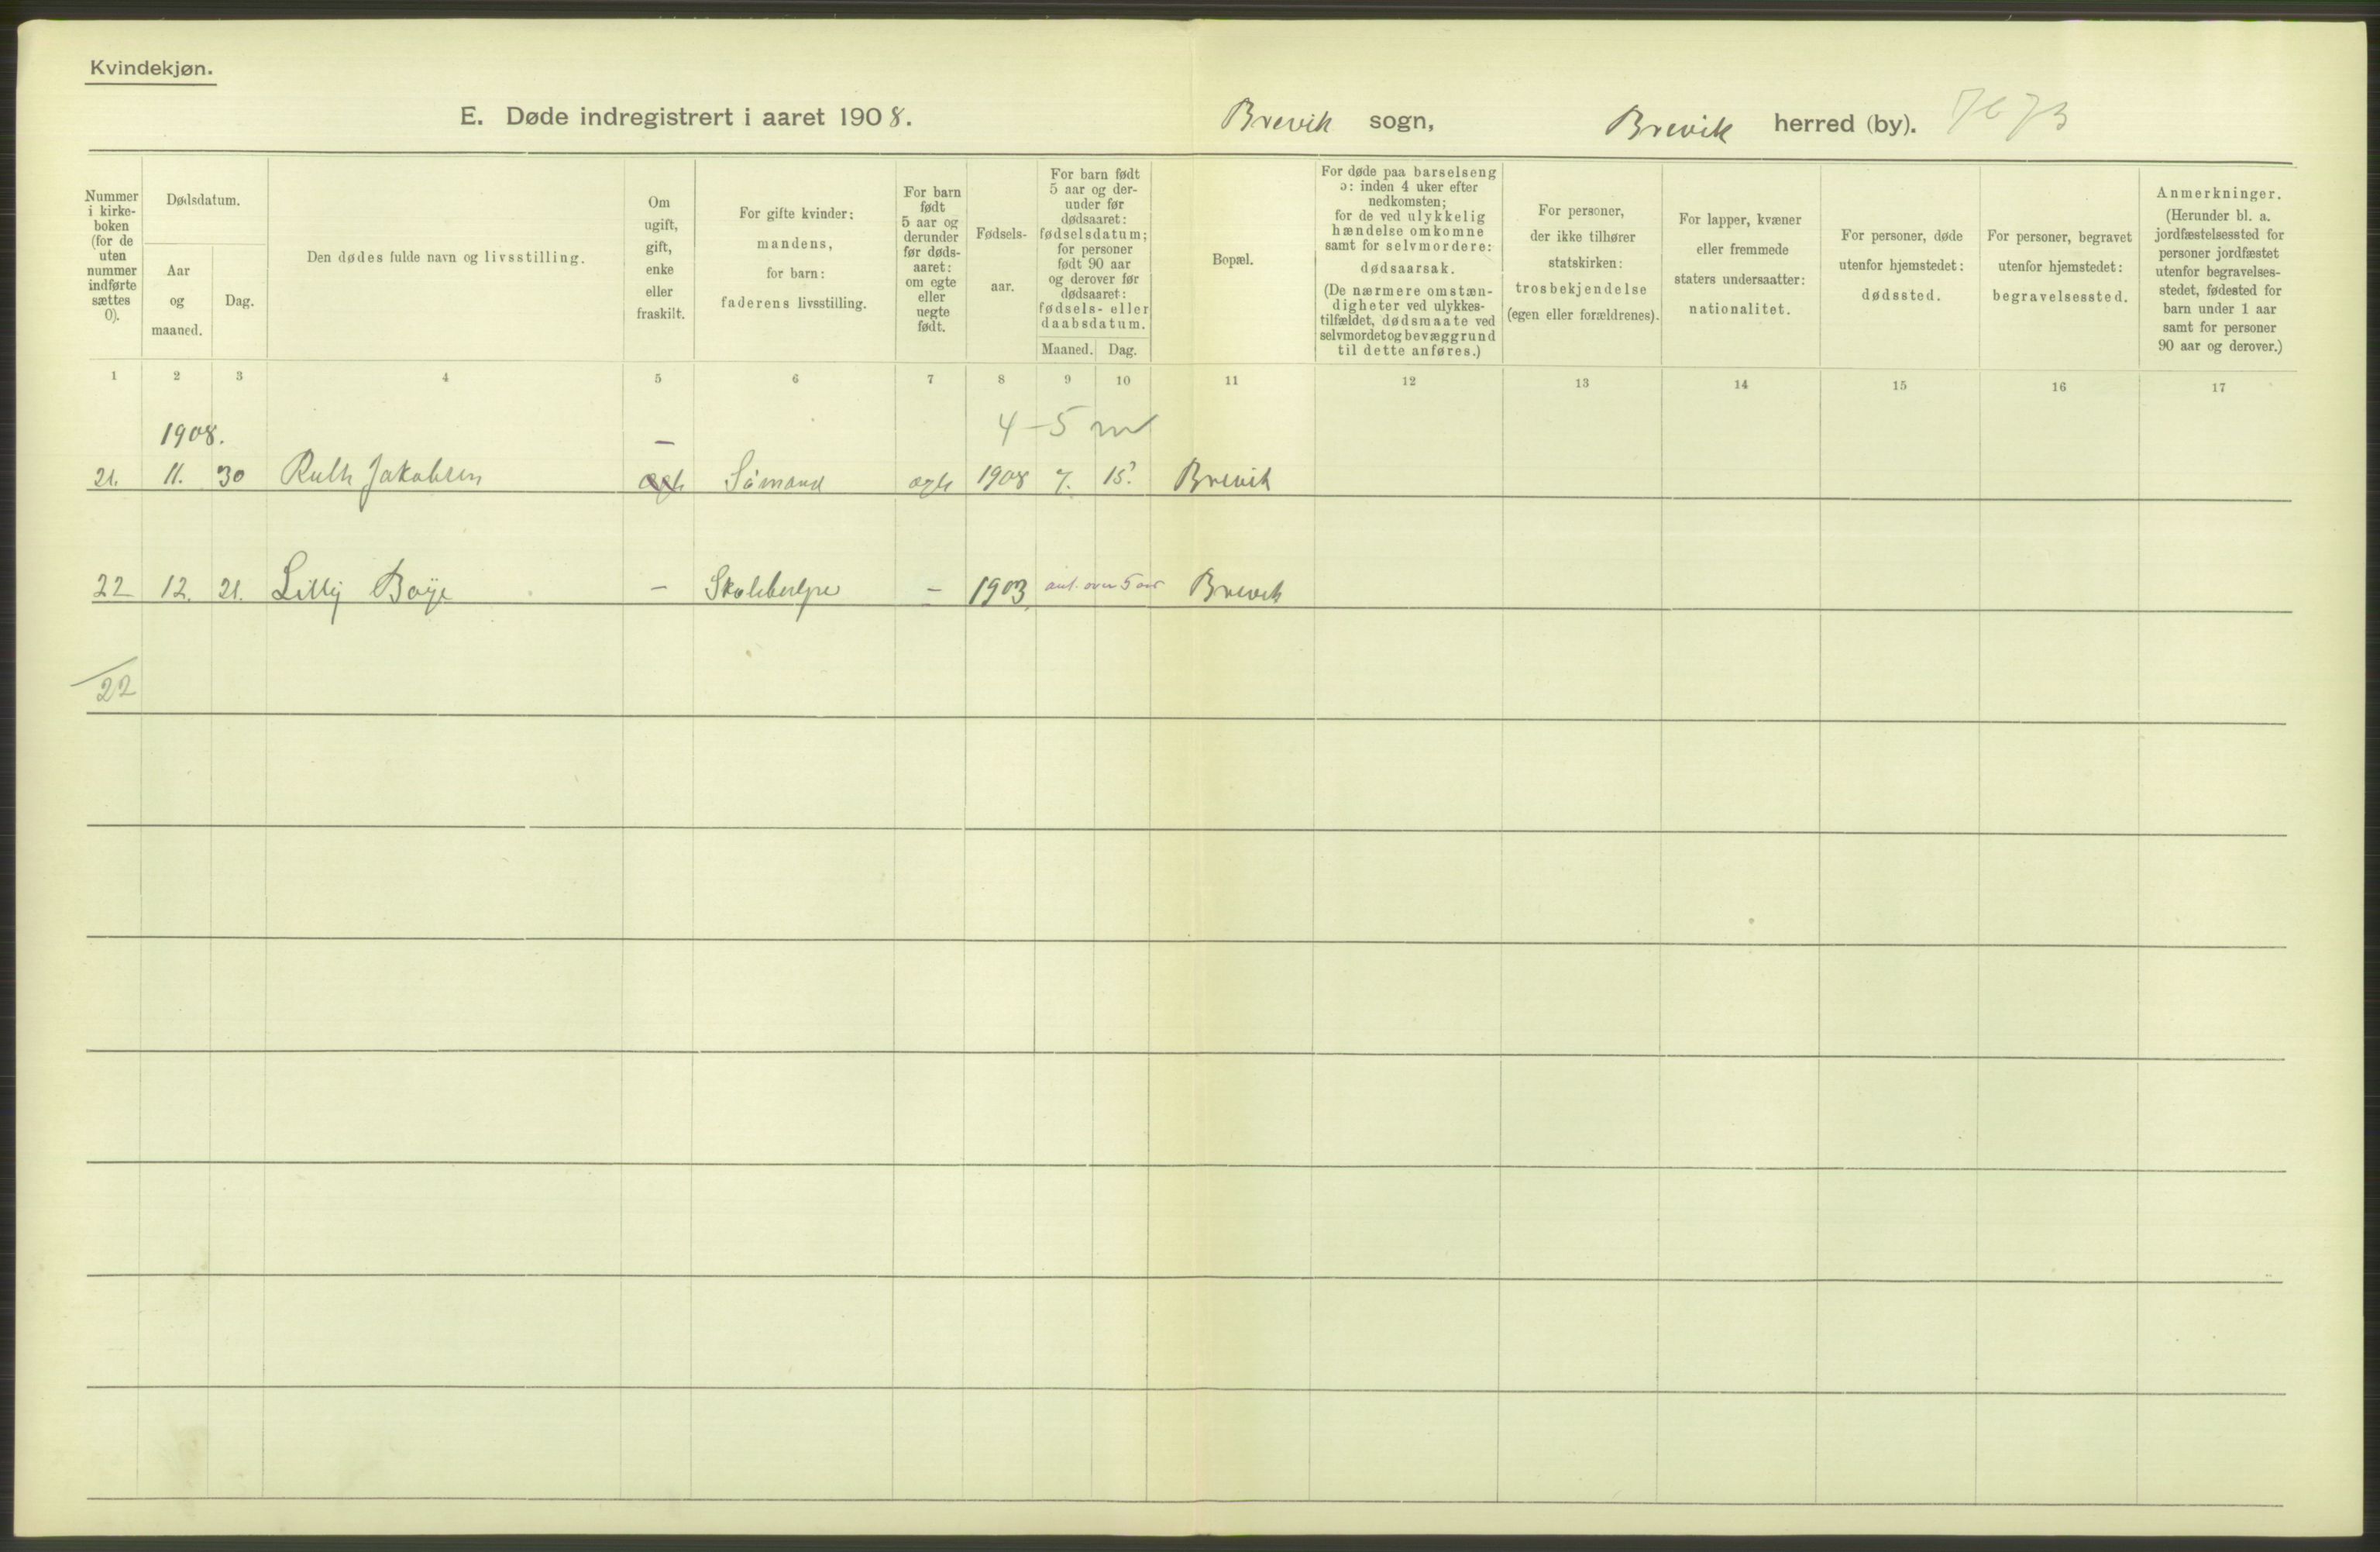 Kvindekjøn.
E. Døde indregistrert i aaret 1908.
Brevik sogn,
Brevik herred (by).
Nummer
i kirke-
boken
(for de
uten
nummer
indførte
sættes
0).
Dødsdatum.
Aar
og
maaned.
Dag.
Den dødes fulde navn og livsstilling.
Om
ugift,
gift,
enke
eller
fraskilt.
For gifte kvinder:
mandens,
for barn:
faderens livsstilling.
For barn
født
5 aar og
derunder
før døds-
aaret:
om egte
eller
uegte
født.
Fødsels-
aar.
For barn født
5 aar og der-
under før
dødsaaret:
fødselsdatum;
for personer
født 90 aar
og derover før
dødsaaret:
fødsels- eller
daabsdatum.
Maaned.
Dag.
Bopæl.
For døde paa barselseng
ɔ: inden 4 uker efter
nedkomsten;
for de ved ulykkelig
hændelse omkomne
samt for selvmordere:
dødsaarsak.
(De nærmere omstæn-
digheter ved ulykkes-
tilfældet, dødsmaate ved
selvmordet og bevæggrund
til dette anføres.)
For personer,
der ikke tilhører
statskirken:
trosbekjendelse
(egen eller forældrenes).
For lapper, kvæner
eller fremmede
staters undersaatter:
nationalitet.
For personer, døde
utenfor hjemstedet:
dødssted.
For personer, begravet
utenfor hjemstedet:
begravelsessted.
Anmerkninger.
(Herunder bl. a.
jordfæstelsessted for
personer jordfæstet
utenfor begravelses-
stedet, fødested for
barn under 1 aar
samt for personer
90 aar og derover.)
1 2 3 4 5 6 7 8 9 10 11 12 13 14 15 16 17
1908. – 4-5 m
21. 11. 30 Ruth Jakobsen ægte Sømand ægte 1908 7. 15? Brevik
22 12. 21. Lilly Boye – – 1903 ant. over 5 aar Brevik
22